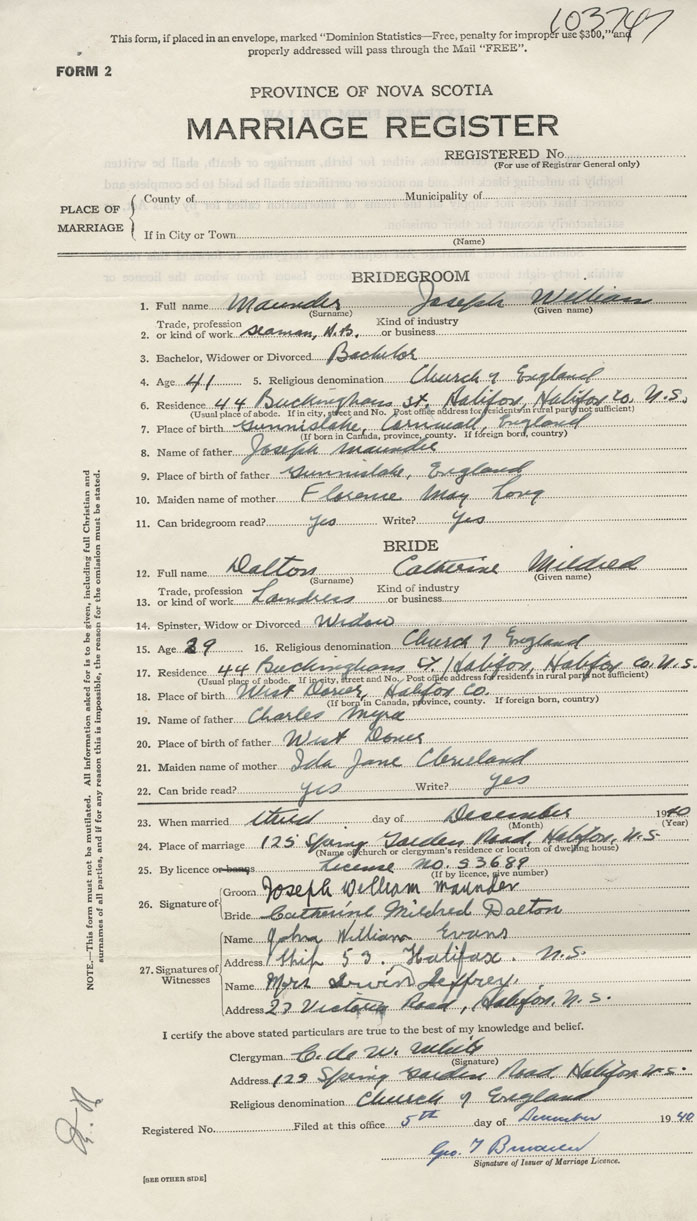 103747
This form, if placed in an envelope, marked "Dominion Statistics—Free, penalty for improper use $300," and
properly addressed will pass through the Mail "FREE".
FORM 2
PROVINCE OF NOVA SCOTIA
MARRIAGE REGISTER
REGISTERED No.
(For use of Registrar General only)
PLACE OF MARRIAGE
County of Municipality of
If in City or Town
(Name)
BRIDEGROOM
1. Full name Maunder Joseph William
(Surname) (Given name)
2. Trade, profession or kind of work Seaman, Kind of industry or business
3. Bachelor, Widower or Divorced Bachelor
4. Age 41 5. Religious denomination Church of England
6. Residence 44 Buckingham St. Halifax, Halifax Co. N.S.
(Usual place of abode. If in city, street and No. Post office address for residents in rural part not sufficient)
7. Place of birth Gunnislake, Cornwall, England
(If born in Canada, province, county. If foreign born, country)
8. Name of father Joseph Maunder
9. Place of birth of father Gunnislake, England
10. Maiden name of mother Florence May Long
11. Can bridegroom read? Yes Write? Yes
BRIDE
12. Full name Dalton Catherine Mildred
(Surname) (Given name)
13. Trade, profession or kind of work Kind of industry or business
14. Spinster, Widow or Divorced Widow
15. Age 29 16. Religious denomination Church of England
17. Residence 44 Buckingham St. Halifax, Halifax Co. N.S.
(Usual place of abode. If in city, street and No. Post office address for residents in rural part not sufficient)
18. Place of birth West Dover, Halifax Co.
(If born in Canada, province, county. If foreign born, country)
19. Name of father Charles Myra
20. Place of birth of father West Dover
21. Maiden name of mother Ida Jane Cleveland
22. Can bride read? Yes Write? Yes
23. When married third day of December 1940
(Month) (Year)
24. Place of marriage 125 Spring Garden Road, Halifax, N.S.
(Name of church or clergyman's residence or location of dwelling house)
25. By licence or banns License no. 53689
(If by licence, give number)
26. Signature of
Groom Joseph William Maunder
Bride Catherine Mildred Dalton
27. Signatures of Witnesses
Name John William Evans
Address Ship 53. Halifax. N.S.
Name Mrs Irwin Jeffrey.
Address 27 Victoria Road, Halifax. N.S.
I certify the above stated particulars are true to the best of my knowledge and belief.
Clergyman C. de W. White
(Signature)
Address 129 Spring Garden Road Halifax N.S.
Religious denomination Church of England
Registered No. Filed at this office 5th day of December 1940
Geo. T
Signature of Issuer of Marriage Licence.
[SEE OTHER SIDE]
NOTE.—This form must not be mutilated. All information asked for is to be given, including full Christian and
surnames of all parties, and if for any reason this is impossible, the reason for the omission must be stated.